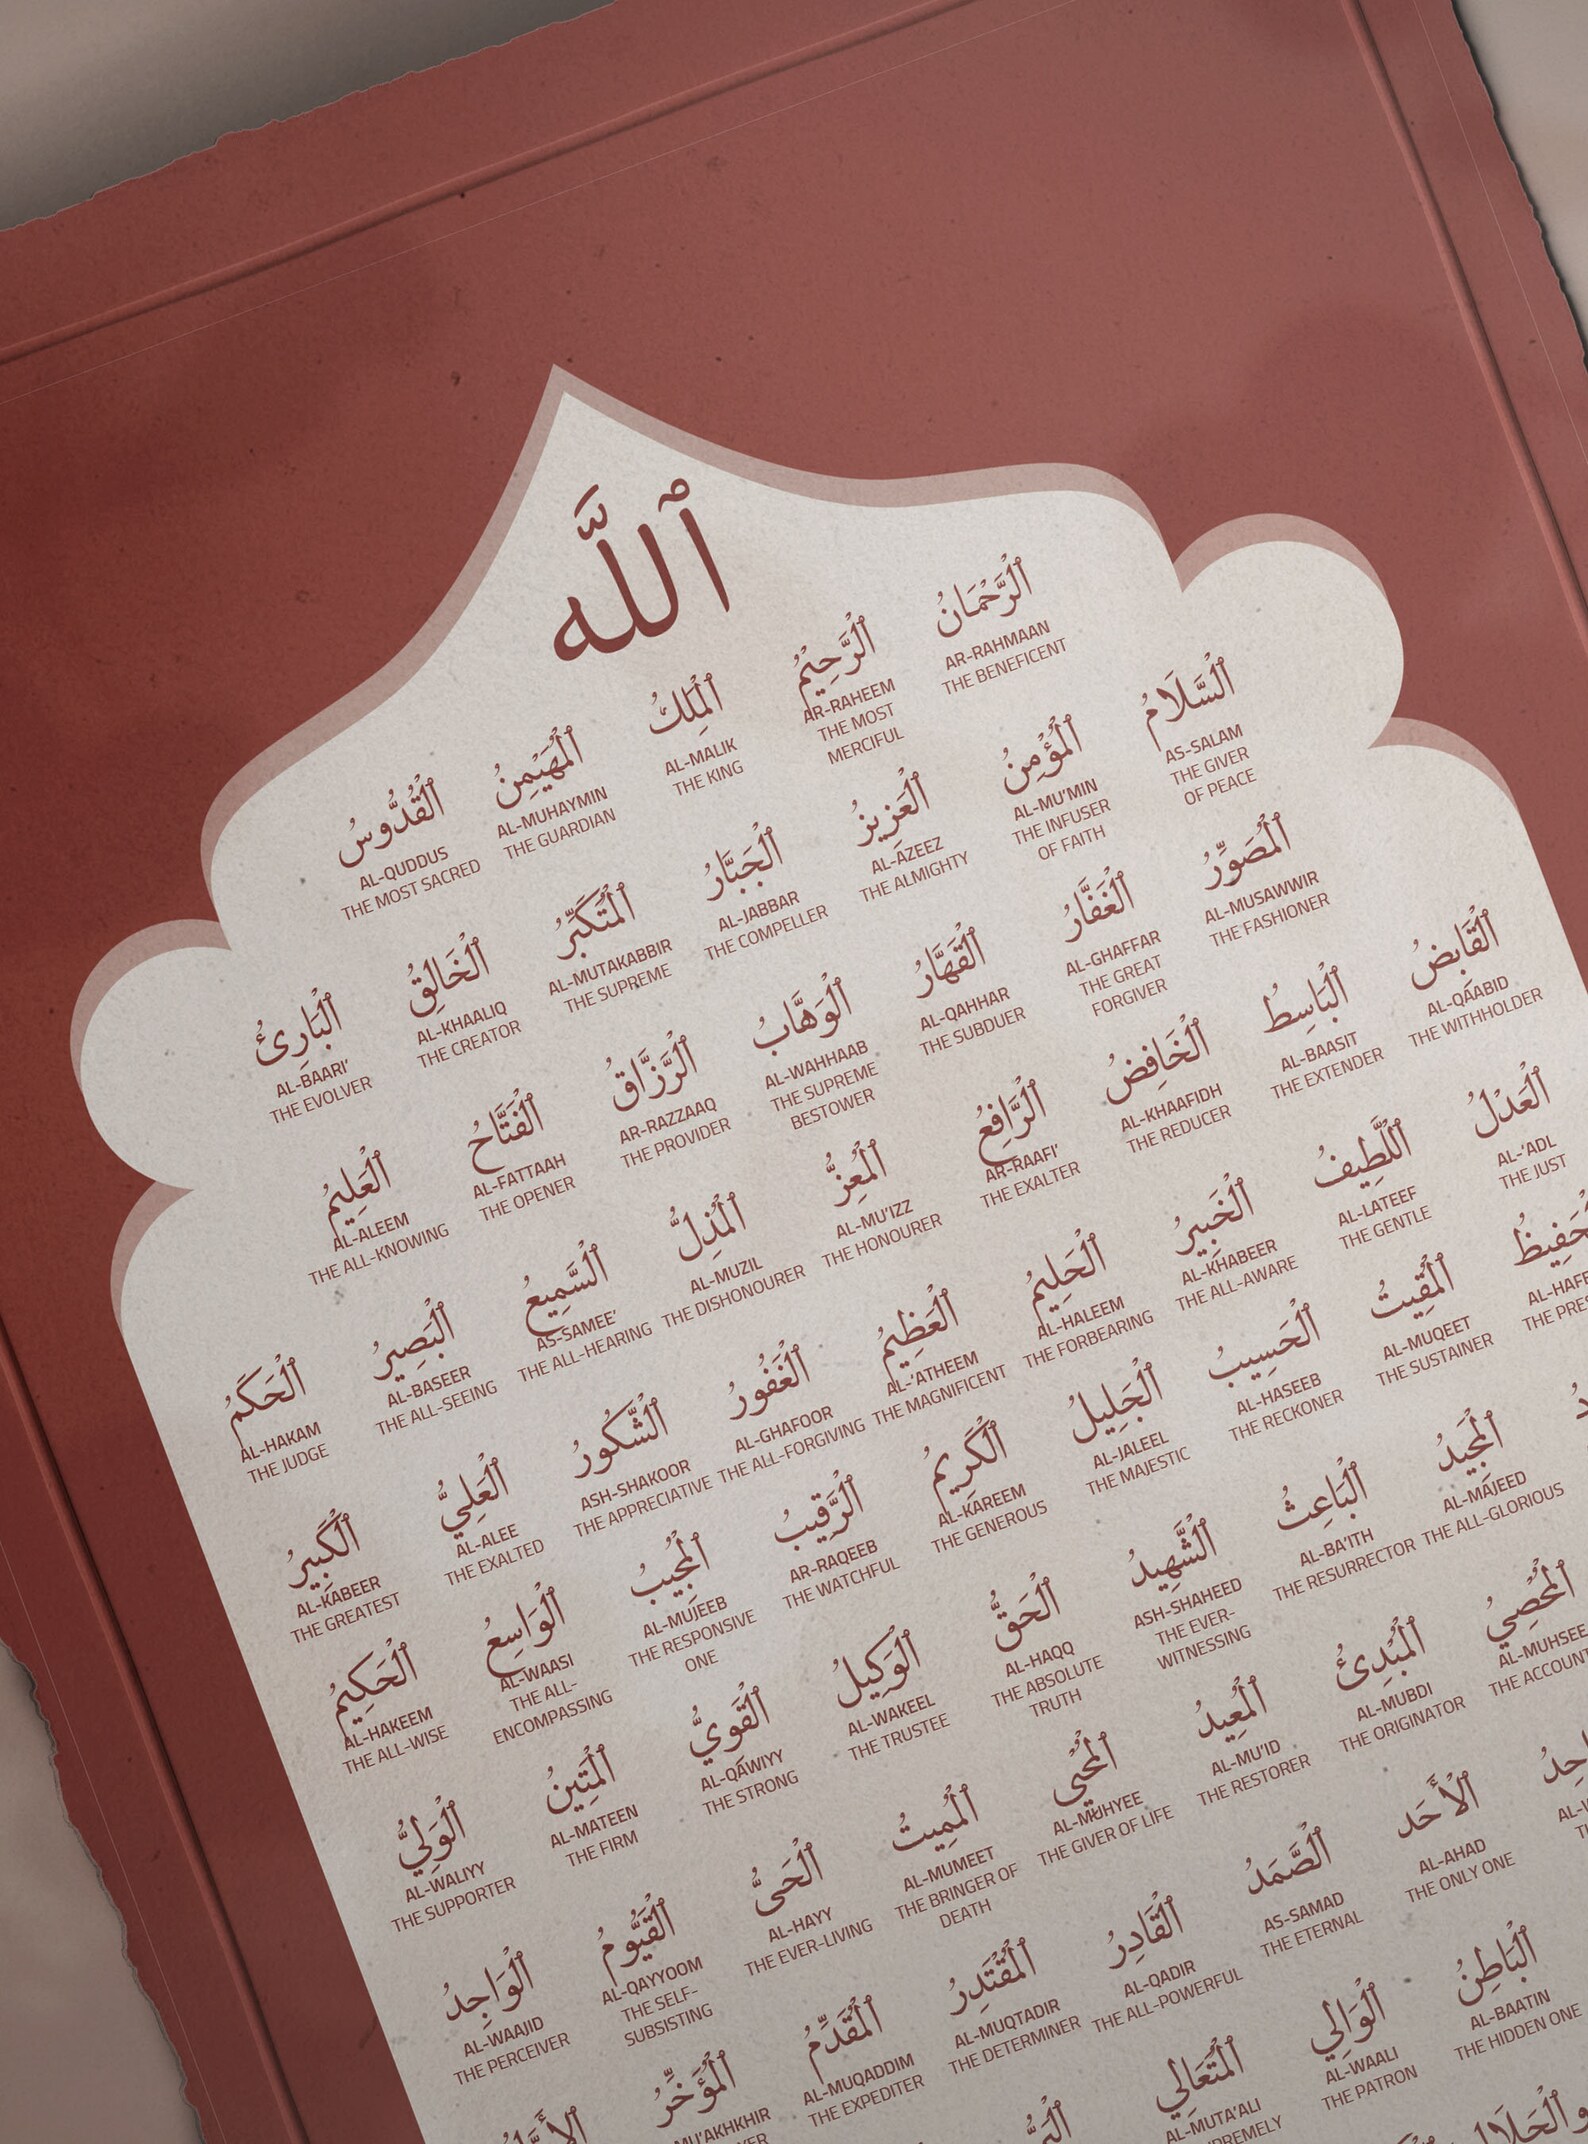 ٱللَّه
ٱلْرَّحْمَانُ
AR-RAHMAAN
THE BENEFICENT
ٱلْرَّحِيْمُ
AR-RAHEEM
THE MOST
MERCIFUL
ٱلْمَلِكُ
AL-MALIK
THE KING
ٱلْمُهَيْمِنُ
AL-MUHAYMIN
THE GUARDIAN
ٱلْقُدُّوسُ
AL-QUDDUS
THE MOST SACRED
ٱلْسَّلَامُ
AS-SALAM
THE GIVER
OF PEACE
ٱلْمُؤْمِنُ
AL-MU'MIN
THE INFUSER
OF FAITH
ٱلْعَزِيزُ
AL-AZEEZ
THE ALMIGHTY
ٱلْجَبَّارُ
AL-JABBAR
THE COMPELLER
ٱلْمُتَكَبِّرُ
AL-MUTAKABBIR
THE SUPREME
ٱلْخَالِقُ
AL-KHAALIQ
THE CREATOR
ٱلْبَارِئُ
AL-BAARI'
THE EVOLVER
ٱلْمُصَوِّرُ
AL-MUSAWWIR
THE FASHIONER
ٱلْغَفَّارُ
AL-GHAFFAR
THE GREAT
FORGIVER
ٱلْقَهَّارُ
AL-QAHHAR
THE SUBDUER
ٱلْوَهَّابُ
AL-WAHHAAB
THE SUPREME
BESTOWER
ٱلْرَّزَّاقُ
AR-RAZZAAQ
THE PROVIDER
ٱلْفَتَّاحُ
AL-FATTAAH
THE OPENER
ٱلْعَلِيمُ
AL-ALEEM
THE ALL-KNOWING
ٱلْقَابِضُ
AL-QAABID
THE WITHHOLDER
ٱلْبَاسِطُ
AL-BAASIT
THE EXTENDER
ٱلْخَافِضُ
AL-KHAAFIDH
THE REDUCER
ٱلْرَّافِعُ
AR-RAAFI'
THE EXALTER
ٱلْمُعِزُّ
AL-MU'IZZ
THE HONOURER
ٱلْمُذِلُّ
AL-MUZIL
THE DISHONOURER
ٱلْسَّمِيعُ
AS-SAMEE'
THE ALL-HEARING
ٱلْبَصِيرُ
AL-BASEER
THE ALL-SEEING
ٱلْحَكَمُ
AL-HAKAM
THE JUDGE
ٱلْعَدْلُ
AL-'ADL
THE JUST
ٱللَّطِيفُ
AL-LATEEF
THE GENTLE
ٱلْخَبِيرُ
AL-KHABEER
THE ALL-AWARE
ٱلْحَلِيمُ
AL-HALEEM
THE FORBEARING
ٱلْعَظِيمُ
AL-'ATHEEM
THE MAGNIFICENT
ٱلْغَفُورُ
AL-GHAFOOR
THE ALL-FORGIVING
ٱلْشَّكُورُ
ASH-SHAKOOR
THE APPRECIATIVE
ٱلْعَلِيُّ
AL-ALEE
THE EXALTED
ٱلْكَبِيرُ
AL-KABEER
THE GREATEST
THE
ٱلْمُقِيتُ
AL-MUQEET
THE SUSTAINER
ٱلْحَسِيبُ
AL-HASEEB
THE RECKONER
ٱلْجَلِيلُ
AL-JALEEL
THE MAJESTIC
ٱلْكَرِيمُ
AL-KAREEM
THE GENEROUS
ٱلْرَّقِيبُ
AR-RAQEEB
THE WATCHFUL
ٱلْمُجِيبُ
AL-MUJEEB
THE RESPONSIVE
ONE
ٱلْوَاسِعُ
AL-WAASI
THE ALL-
ENCOMPASSING
ٱلْحَكِيمُ
AL-HAKEEM
THE ALL-WISE
ٱلْمَجِيدُ
AL-MAJEED
THE ALL-GLORIOUS
ٱلْبَاعِثُ
AL-BA'ITH
THE RESURRECTOR
ٱلْشَّهِيدُ
ASH-SHAHEED
THE EVER-
WITNESSING
ٱلْحَقُّ
AL-HAQQ
THE ABSOLUTE
TRUTH
ٱلْوَكِيلُ
AL-WAKEEL
THE TRUSTEE
ٱلْقَوِيُّ
AL-QAWIYY
THE STRONG
ٱلْمَتِينُ
AL-MATEEN
THE FIRM
ٱلْوَلِيُّ
AL-WALIYY
THE SUPPORTER
ٱلْمُحْصِي
AL-MUHSEE
THE
ٱلْمُبْدِئُ
AL-MUBDI
THE ORIGINATOR
ٱلْمُعِيدُ
AL-MU'ID
THE RESTORER
ٱلْمُحْيِي
AL-MUHYEE
THE GIVER OF LIFE
ٱلْمُمِيتُ
AL-MUMEET
THE BRINGER OF
DEATH
ٱلْحَىُّ
AL-HAYY
THE EVER-LIVING
ٱلْقَيُّومُ
AL-QAYYOOM
THE SELF-
SUBSISTING
ٱلْوَاجِدُ
AL-WAAJID
THE PERCEIVER
ٱلْأَحَد
AL-AHAD
THE ONLY ONE
ٱلْصَّمَدُ
AS-SAMAD
THE ETERNAL
ٱلْقَادِرُ
AL-QADIR
THE ALL-POWERFUL
ٱلْمُقْتَدِرُ
AL-MUQTADIR
THE DETERMINER
ٱلْمُقَدِّمُ
AL-MUQADDIM
THE EXPEDITER
ٱلْمُؤَخِّرُ
ٱلْبَاطِنُ
AL-BAATIN
THE HIDDEN ONE
ٱلْوَالِي
AL-WAALI
THE PATRON
ٱلْمُتَعَالِي
AL-MUTA'ALI